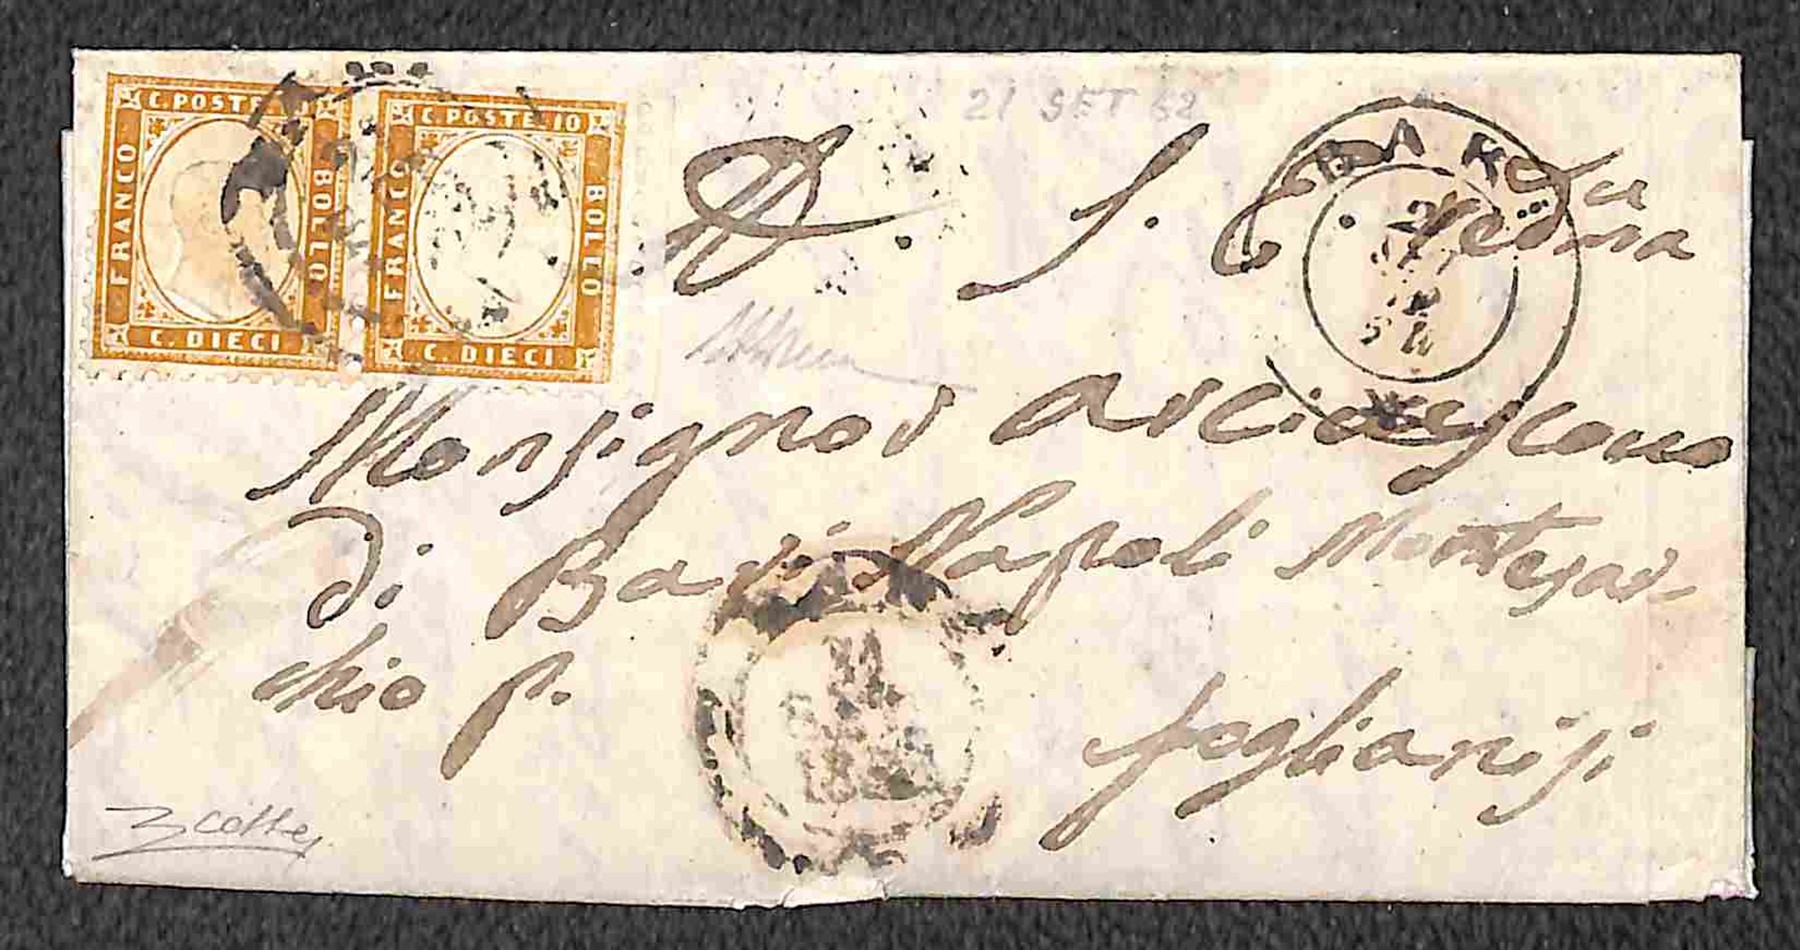 C. POSTE 10
FRANCO
BOLLO
C. DIECI
C. POSTE 10
FRANCO
BOLLO
C. DIECI
21 SET 62
BA
D. S. E Rma
Monsignor Arcivescovo
di Bari Napoli Montesar-
chio p. foglianisi